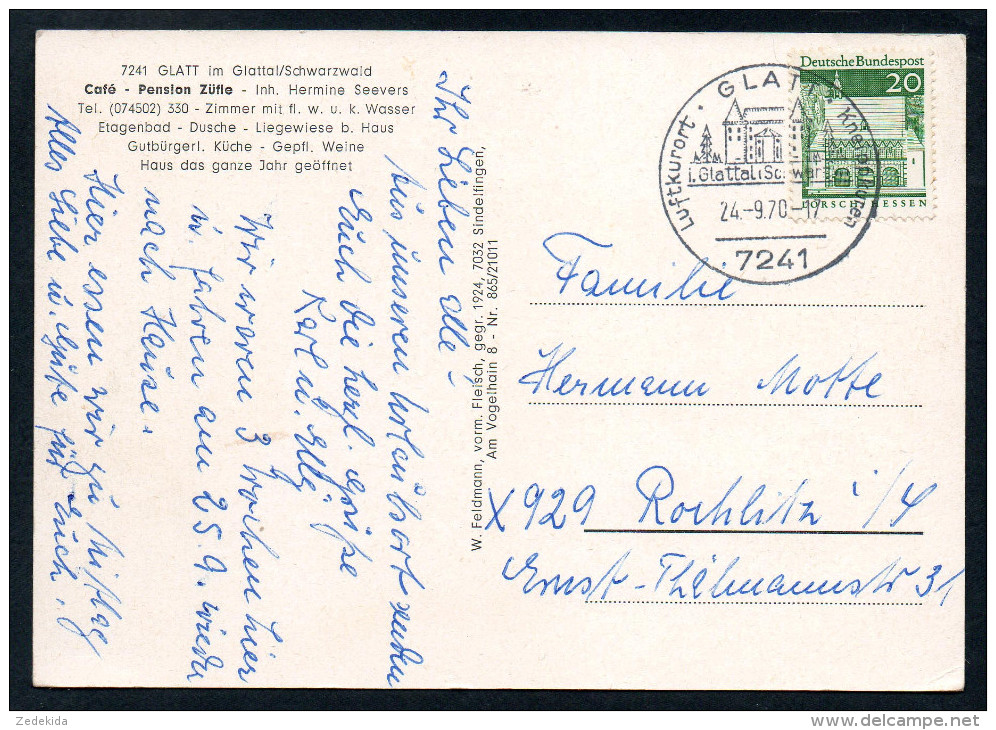 7241 GLATT im Glattal/Schwarzwald
Café - Pension Züfle - Inh. Hermine Seevers
Tel. (074502) 330 - Zimmer mit fl. w. u. k. Wasser
Etagenbad - Dusche - Liegewiese b. Haus
Gutbürgerl. Küche - Gepfl. Weine
Haus das ganze Jahr geöffnet
Ihr Lieben alle -
Aus unseren Urlaubsort senden
Euch die herzl. Grüße
Karl u. Elli
Wir waren 3 Wochen hier
u. fahren am 25.9. wieder
nach Hause.
Hier essen wir zu Mittag
Alles Liebe u. Gute für Euch.
W. Feldmann, vorm. Fleisch, gegr. 1924, 7032 Sindelfingen,
Am Vogelhain 8 - Nr. 865/21011
Luftkurort · GLATT ·
i. Glattal i Schwar
24.-9.70.-17
7241
Deutsche Bundespost
20
LORSCH/HESSEN
Familie
Hermann Motte
X929 Rochlitz i/S
Ernst-Thälmannstr 31
Zedekida
delcampe.net